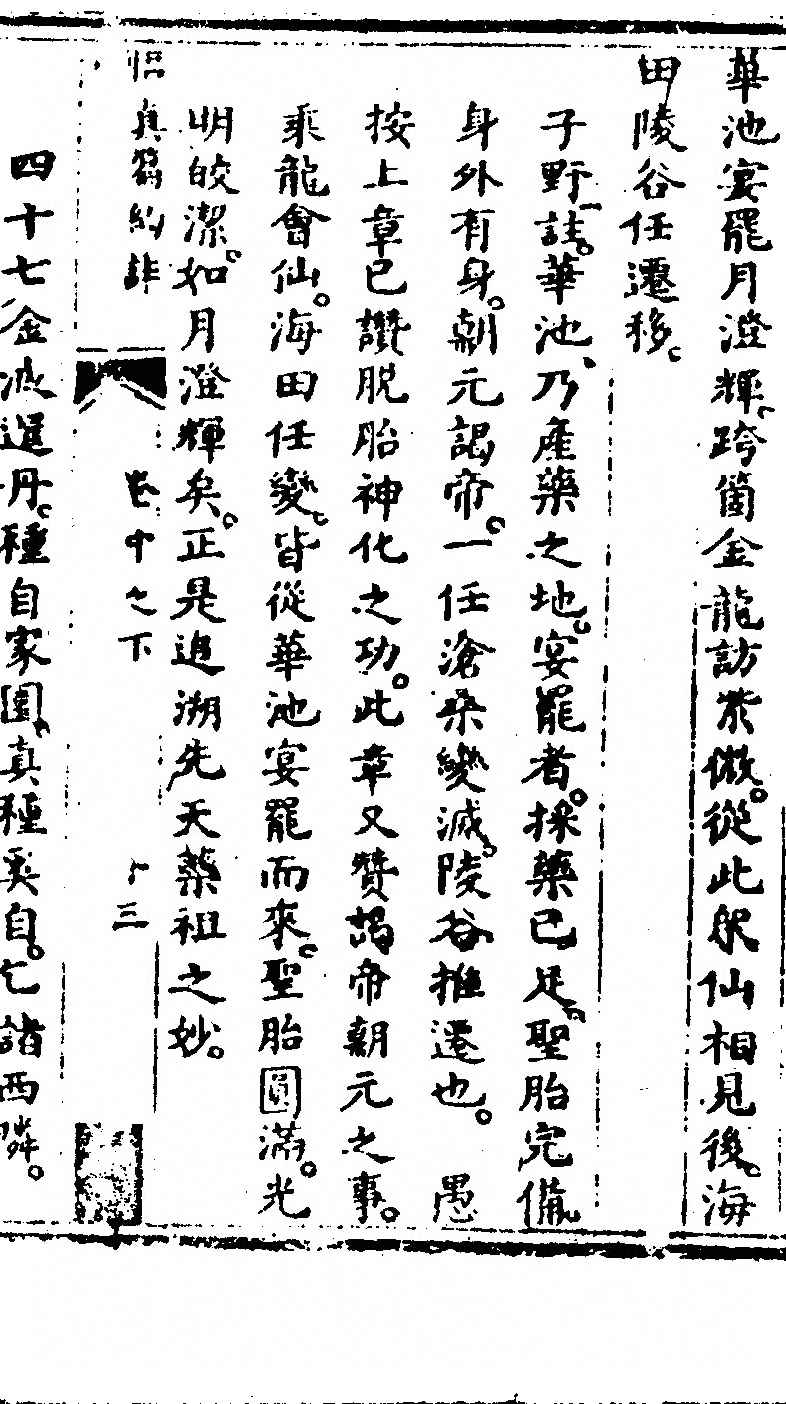 華池宴罷月澄輝。跨箇金龍訪紫微。從此眾仙相見後。海
田陵谷任遷移。
子野註。華池、乃產藥之地。宴罷者。採藥已足。聖胎完備
身外有身。朝元謁帝。一任滄桑變滅。陵谷推遷也。 愚
按上章已讚脫胎神化之功。此章又贊謁帝朝元之事。
乘龍會仙。海田任變。皆從華池宴罷而來。聖胎圓滿。光
明皎潔。如月澄輝矣。正是追溯先天藥祖之妙。
悟真篇約註 卷中之下 三
四十七金液還丹。種自家園。真種奚自。乞諸西隣。